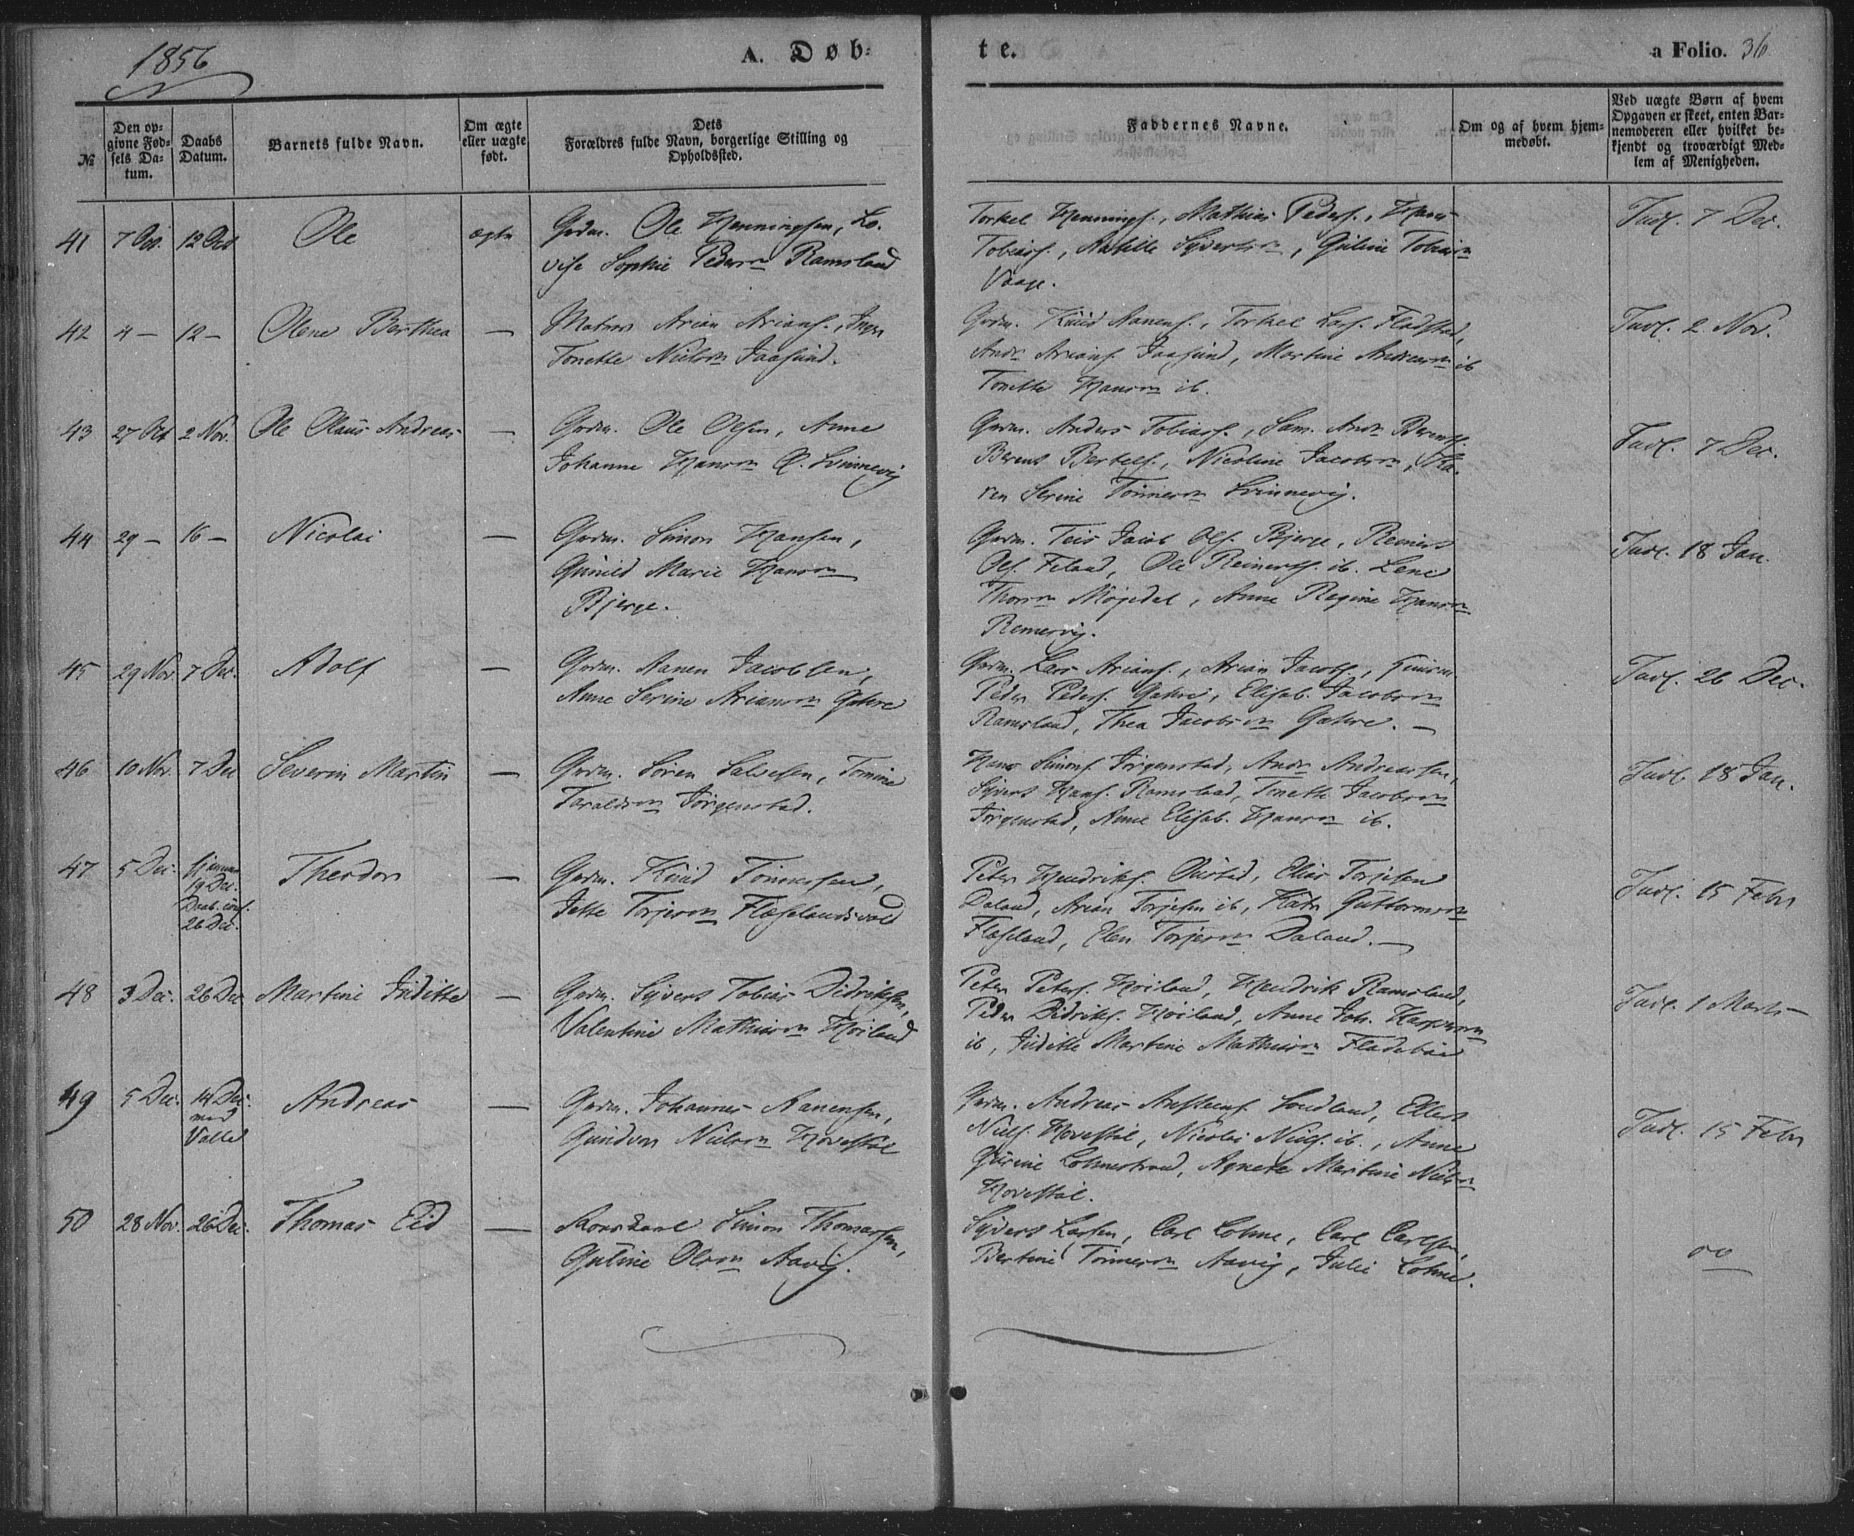 1856
A. Døb-
te.
a Folio. 36
№
Den op-
givne Fød-
sels Da-
tum.
Daabs
Datum.
Barnets fulde Navn.
Om ægte
eller uægte
født.
Dets
Forældres fulde Navn, borgerlige Stilling og
Opholdssted.
Faddernes Navne.
Om og af hvem hjem-
medøbt.
Ved uægte Børn af hvem
Opgaven er skeet, enten Bar-
nemoderen eller hvilket be-
kjendt og troværdigt Med-
lem af Menigheden.
41 7 Oct. 12 Oct Ole ægte Gaardm. Ole Henningsen, Lo-
vise Sophie Pedersn Ramsland
Torkel Hennings., Mathias Peders., Hans
Tobiass., Syvertsn, Guline Tobiasn
Vaage.
Indl. 7 Dec.
42 4 — 12 — Olene Berthea — Matros Arian Arians., Inger
Tonette Nielsn Jaasund.
Gaardm. Knud Aanens., Torkel Lars. Fladstad,
Andr. Arians. Jaasund, Martine Andreasn ib
Tonette Hansn ib.
Indl. 2 Nov.
43 27 Oct 2 Nov. Ole Olaus Andreas — Gaardm. Ole Olsen, Anne
Johanne Hansn Ø. Svinnevig
Gaardm. Anders Tobiass., Sam. Andr. Berents.
Berent Bertels., Nicoline Jacobsn, Ka-
ren Serine Tønnesn Svinnevig.
Indl. 7 Dec.
44 29 — 16 — Nicolai — Gaardm. Simon Hansen,
Gunild Marie Hansn
Bjerge.
Gaardm. Teis Jacob Ols. Bjerge, Reinert
Ols. Feland, Ole Reinerts. ib. Lene
Thorsn Møgedal, Anne Regine Hansn
Remesvig.
Indl. 18 Jan.
45 29 Nov 7 Dec. Adolf — Gaardm. Aanen Jacobsen,
Anne Serine Ariansn Gahre
Gaardm. Lars Arians., Arian Jacobs.,
Peder Peders. Gahre, Elisab. Jacobsn
Ramsland, Thea Jacobsn Gahre. —
Indl. 26 Dec.
46 10 Nov. 7 Dec Severin Martin — Gaardm. Søren Salvesen, Tomine
Taraldsn Jørgenstad.
Hans Simons. Jørgenstad, Andr. Andreassen,
Syvert Hans. Ramsland, Tonette Jacobsn
Jørgenstad, Anne Elisab. Hansn ib.
Indl. 18 Jan.
47 5 Dec. Hjemme
19 Dec.
Daab. conf.
26 Dec. Theodor — Gaardm. Knud Tønnessen,
Jette Torjesn Flæselandsvold
Peter Hendriks. Ousted, Elias Torjesen
Daland, Arian Torjesen ib, Katr. Guttormsn
Flæseland, Elen Torjesn Daland. —
Indl. 15 Febr
48 3 Dec. 26 Dec Martine Juditte — Gaardm. Syvert Tobias Didriksen,
Valentine Mathiasn Høiland
Peter Peters. Høiland, Hendrik Ramsland,
Peder Didriks. Høiland, Anne Joh. Kaspersn
ib, Juditte Martine Mathiasn Fladebøe
Indl. 1 Marts
49 5 Dec. 14 Dec.
med
Valle Andreas — Gaardm. Johannes Aanensen,
Gundvor Nielsn Hovestøl
Gaardm. Andreas Anstens. Lundland, Ellert
Niels. Hovestøl, Nicolai Niels. ib., Anne
Gurine Lohnestrand, Agnete Martine Nielsn
Hovestøl.
Indl. 15 Febr
50 28 Nov. 26 Dec. Thomas Eid — Korskarl Simon Thomassen,
Guline Olsn Aavig.
Syvert Larsen, Carl Lohne, Carl Carlsen,
Bertine Tønnesn Aavig, Julie Lohne.